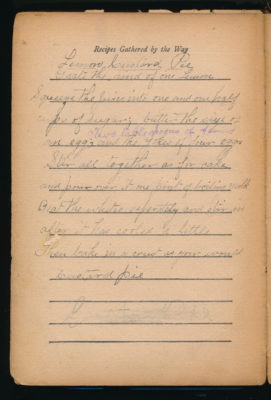 Recipes Gathered by the Way
Lemon Custard Pie
Grate the rind of one lemon
Squeeze the juice into one and one half
cups of sugar, butter the size of
two tablespoons of
an egg, and the yokes of four eggs
Stir all together as for cake
and pour over it one pint of boiling
Beat the whites separately and stir in
after it has cooled a little
Then bake in a crust as you would
custard pie